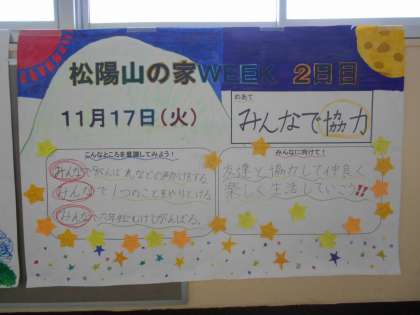 松陽山の家WEEK 2日目
11月17日(火)
のあて
みんなで協力
こんなところを意識してみよう!
みんなでがんばれなどの声かけをする
みんなで1つのことをやりとげる
みんなで六年生にむけてがんばる。
みんなに向けて!
友達と協力して仲良く
楽しく生活していこう!!